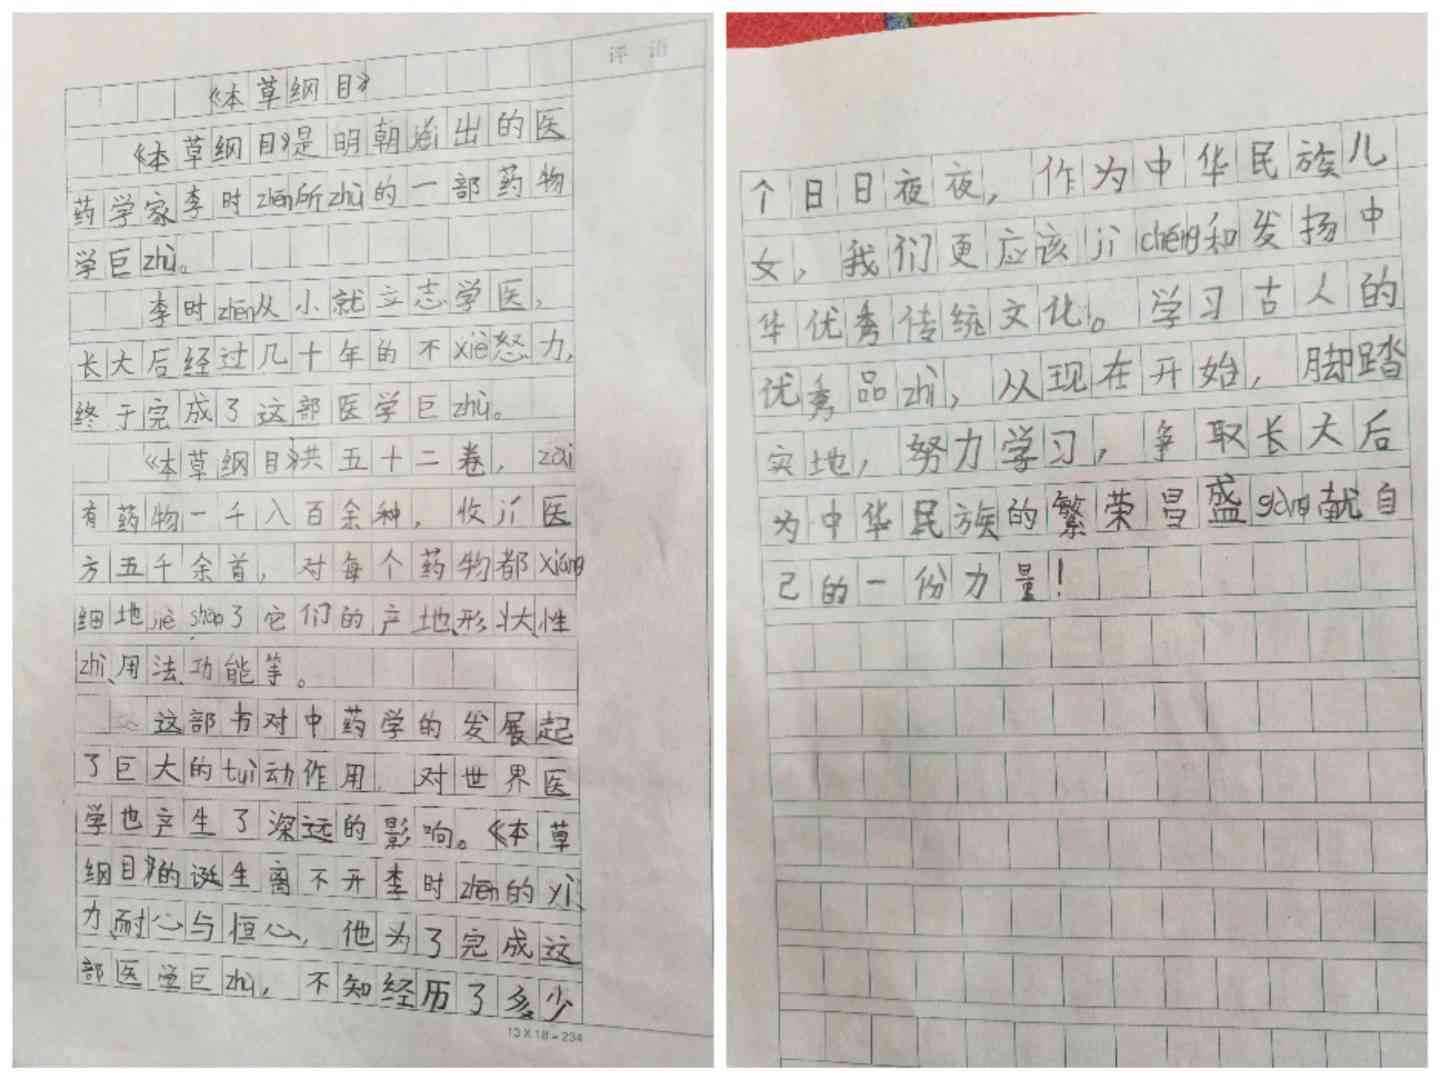 评语
《本草纲目》
《本草纲目》是明朝jié出的医
药学家李时zhēn所zhù的一部药物
学巨zhù。
李时zhēn从小就立志学医,
长大后经过几十年的不xiè怒力,
终于完成了这部医学巨zhù。
《本草纲目》共五十二卷,zǎi
有药物一千八百余种,收jí医
方五千余首,对每个药物都xiáng
细地jiè shào了它们的产地、形状、性
zhì、用法、功能等。
这部书对中药学的发展起
了巨大的tuī动作用,对世界医
学也产生了深远的影响。《本草
纲目》的诞生离不开李时zhēn的yì
力、耐心与恒心,他为了完成这
部医学巨zhù,不知经历了多少
13×18=234
个日日夜夜,作为中华民族儿
女,我们更应该jì chéng和发扬中
华优秀传统文化。学习古人的
优秀品zhì,从现在开始,脚踏
实地,努力学习,争取长大后
为中华民族的繁荣昌盛gòng献自
己的一份力量!